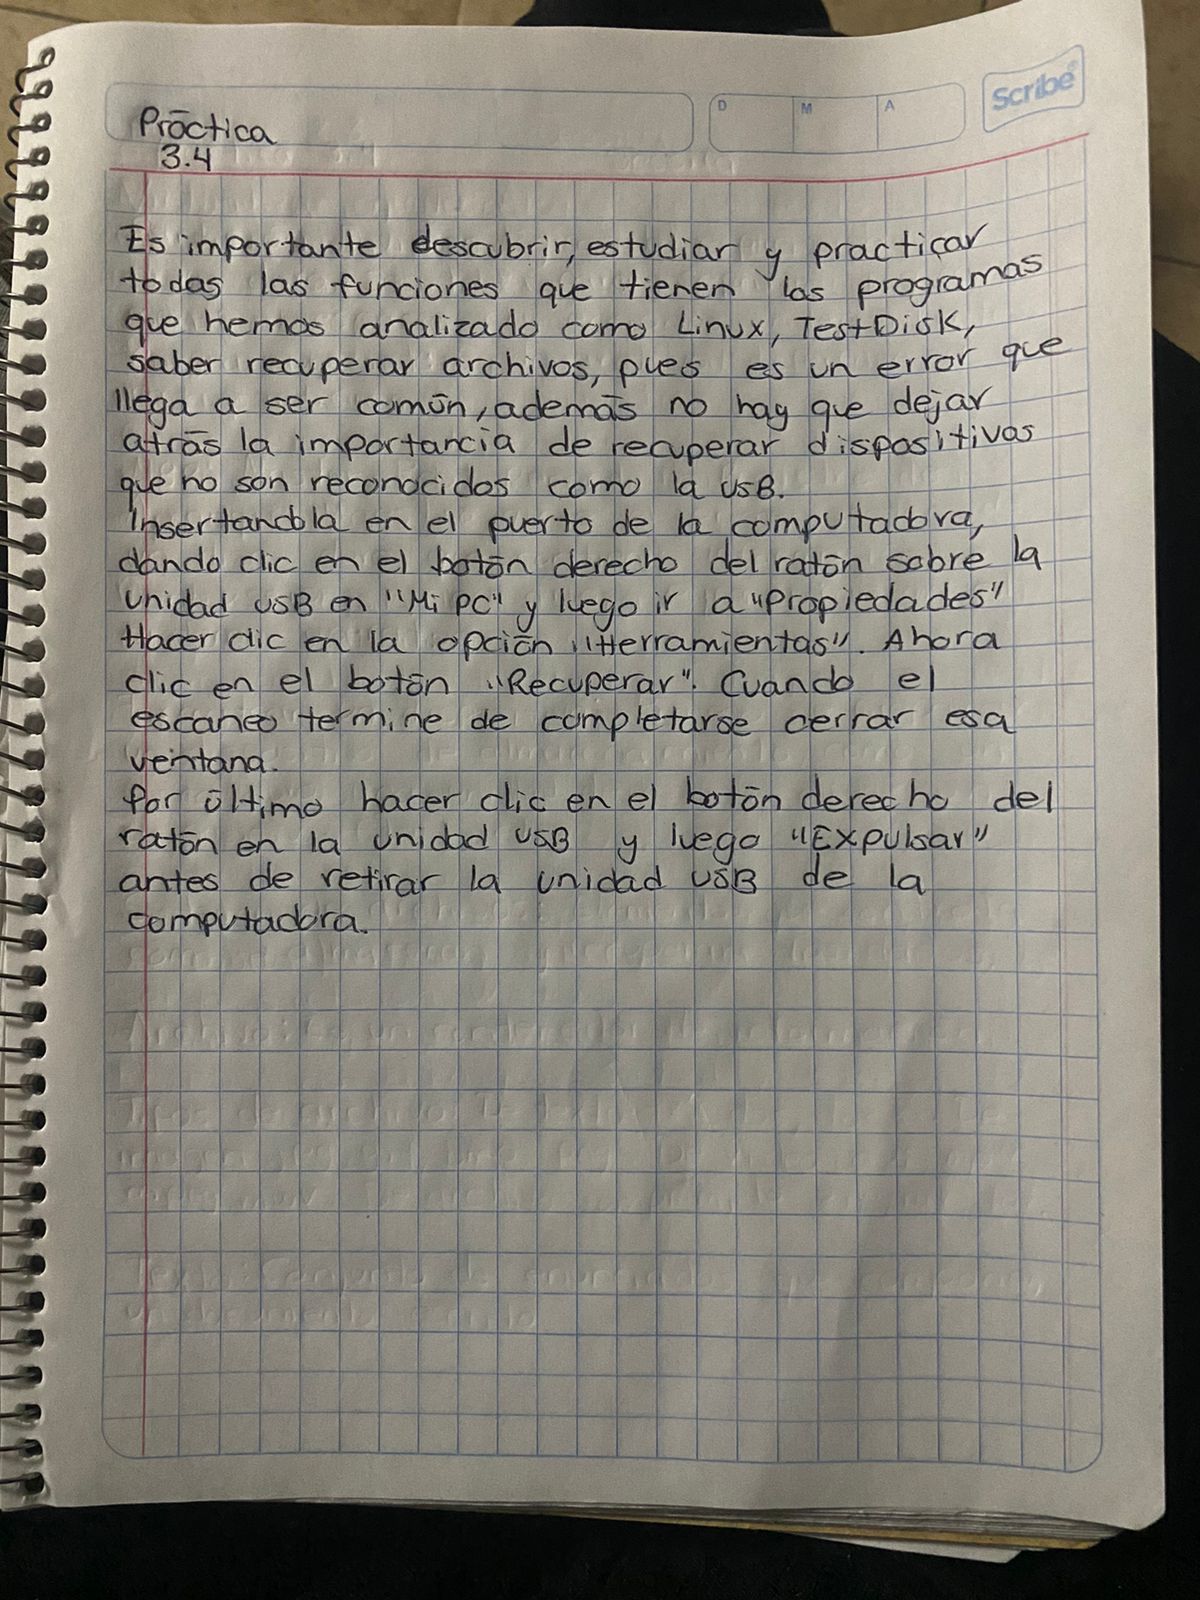 Scribe®
D M A
Práctica
3.4
Es importante descubrir, estudiar y practicar
todas las funciones que tienen los programas
que hemos analizado como Linux, TestDisk,
saber recuperar archivos, pues es un error que
llega a ser común, además no hay que dejar
atrás la importancia de recuperar dispositivos
que no son reconocidos como la USB.
Insertandola en el puerto de la computadora,
dando clic en el botón derecho del ratón sobre la
unidad USB en "Mi PC" y luego ir a "Propiedades"
Hacer clic en la opción "Herramientas". Ahora
clic en el botón "Recuperar". Cuando el
escaneo termine de completarse cerrar esa
ventana.
Por último hacer clic en el botón derecho del
ratón en la unidad USB y luego "Expulsar"
antes de retirar la unidad USB de la
computadora.